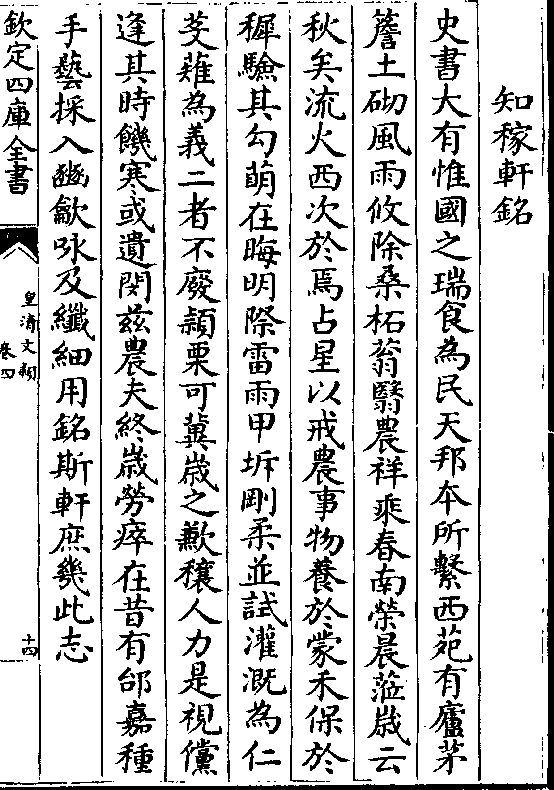 知稼軒銘
史書大有惟國之瑞食為民天邦本所繫西苑有廬茅
簷土砌風雨攸除桑柘蓊翳農祥乘春南榮晨蒞歲云
秋矣流火西次於焉占星以戒農事物養於蒙禾保於
穉驗其勾萌在晦明際雷雨甲坼剛柔並試灌溉為仁
芟薙為義二者不廢穎栗可冀歲之歉穰人力是視儻
逢其時饑寒或遺閔茲農夫終歲勞瘁在昔有邰嘉種
手藝採入豳龡咏及纖細用銘斯軒庶幾此志
欽定四庫全書
皇清文穎
卷四
十四